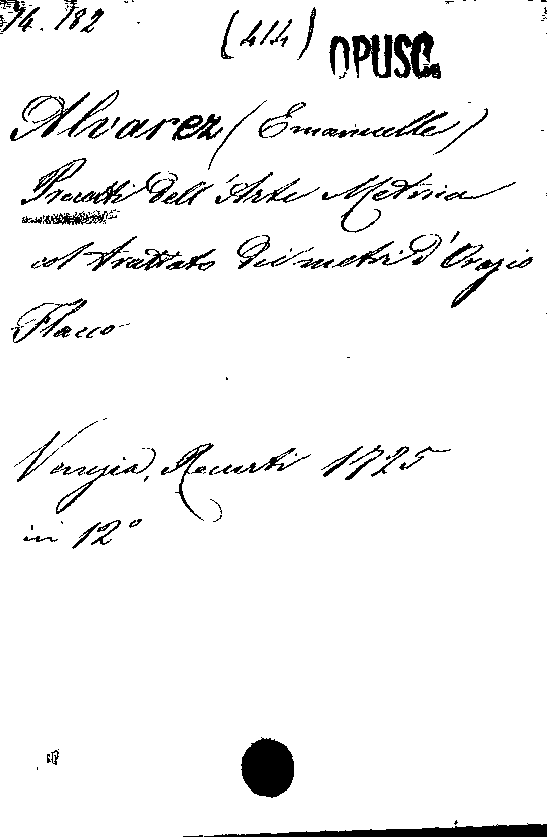 74.182
(414) OPUSC.
Alvarez (Emanuelle)
Precetti dell'Arte Metrica
col trattato dei metri d'Orazio
Flacco
Venezia, Recurti 1725
in 12°